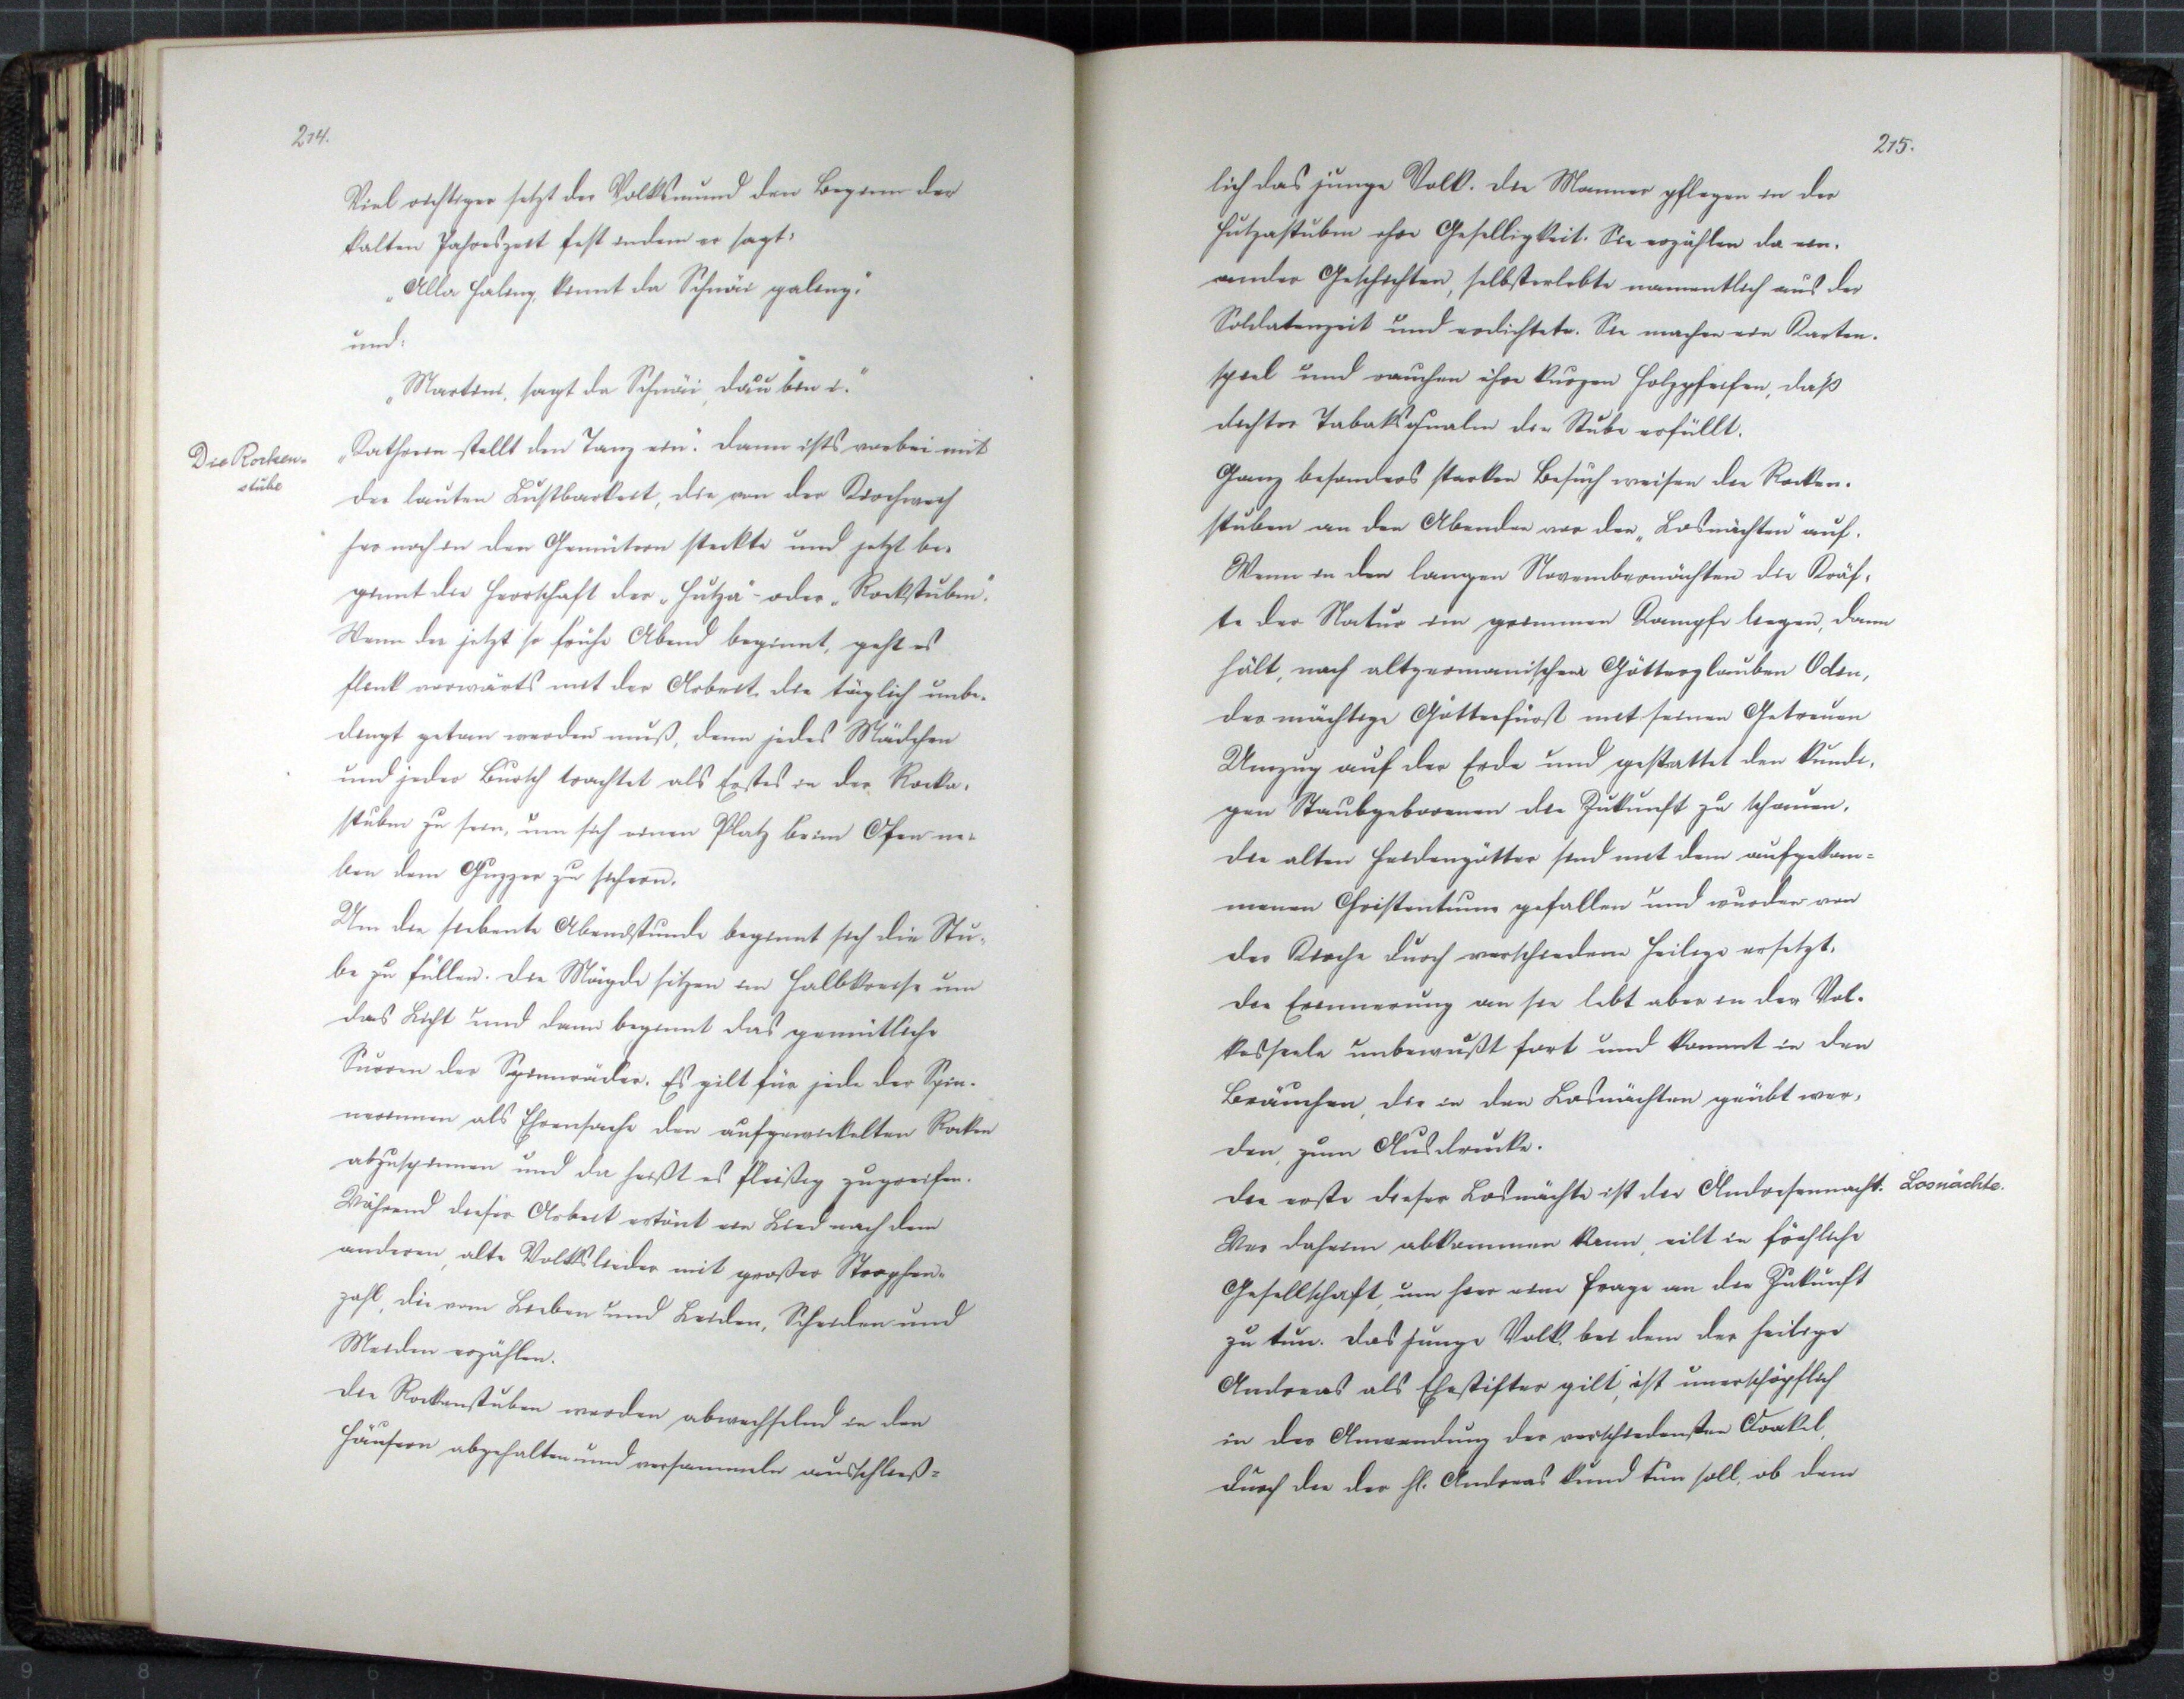 214.
Viel richtiger setzt der Volksmund den Beginn der
kalten Jahreszeit fest indem er sagt:
„Alla Haling, kinnt da Schnäi galing."
und:
„Martini, sagt da Schnäi, dau bin i."
Die Rocken-
stube
„Kathrein stellt den Tanz ein". Dann ists vorbei mit
der lauten Lustbarkeit, die von der Kirchweih
her noch in den Gemütern steckte und jetzt be-
ginnt die Herrschaft der „Hutza"- oder „Rockstuben".
Wenn der jetzt so frühe Abend beginnt, geht es
flink vorwärts mit der Arbeit, die täglich unbe-
dingt getan werden muß, denn jedes Mädchen
und jeder Bursch trachtet als Erstes in der Rocka-
stuben zu sein, um sich einen Platz beim Ofen ne-
ben dem Guzzer zu sichern.
Um die siebente Abendstunde beginnt sich die Stu-
be zu füllen. Die Mägde sitzen im Halbkreise um
das Licht und dann beginnt das gemütliche
Surren der Spinnräder. Es gilt für jede der Spin-
nerinnen als Ehrensache den aufgewickelten Rocken
abzuspinnen und da heißt es fleißig zugreifen.
Während dieser Arbeit ertönt ein Lied nach dem
anderen, alte Volkslieder mit großer Strophen-
zahl, die vom Lieben und Leiden, Scheiden und
Meiden erzählen.
Die Rockenstuben werden abwechselnd in den
Häusern abgehalten und versammeln ausschließ-
215.
lich das junge Volk. Die Männer pflegen in der
Hutzastuben ihre Geselligkeit. Sie erzählen da ein-
ander Geschichten, selbsterlebte namentlich aus der
Soldatenzeit und erdichtete. Sie machen ein Karten-
spiel und rauchen ihre kurzen Holzpfeifen, daß
dichter Tabaksqualm die Stube erfüllt.
Ganz besonders starken Besuch weisen die Rocken-
stuben an den Abenden vor den „Losnächten" auf.
Wenn in den langen Novembernächten die Kräf-
te der Natur im grimmen Kampfe liegen, dann
hält, nach altgermanischem Götterglauben Odin,
der mächtige Götterfürst mit seinen Getreuen
Umzug auf der Erde und gestattet den kundi-
gen Staubgeborenen die Zukunft zu schauen.
Die alten Heidengötter sind mit dem aufgekom-
menen Christentum gefallen und wurden von
der Kirche durch verschiedene Heilige ersetzt.
Die Erinnerung an sie lebt aber in der Vol-
kesseele unbewußt fort und kommt in den
Bräuchen, die in den Losnächten geübt wer-
den, zum Ausdrucke.
Die erste dieser Losnächte ist die Andresennacht.
Losnächte.
Wer daheim abkommen kann, eilt in fröhliche
Gesellschaft, um hier eine Frage an die Zukunft
zu tun. Das junge Volk, bei dem der heilige
Andreas als Ehestifter gilt, ist unerschöpflich
in der Anwendung der verschiedensten Orakel,
durch die der hl. Andreas kund tun soll, ob dem